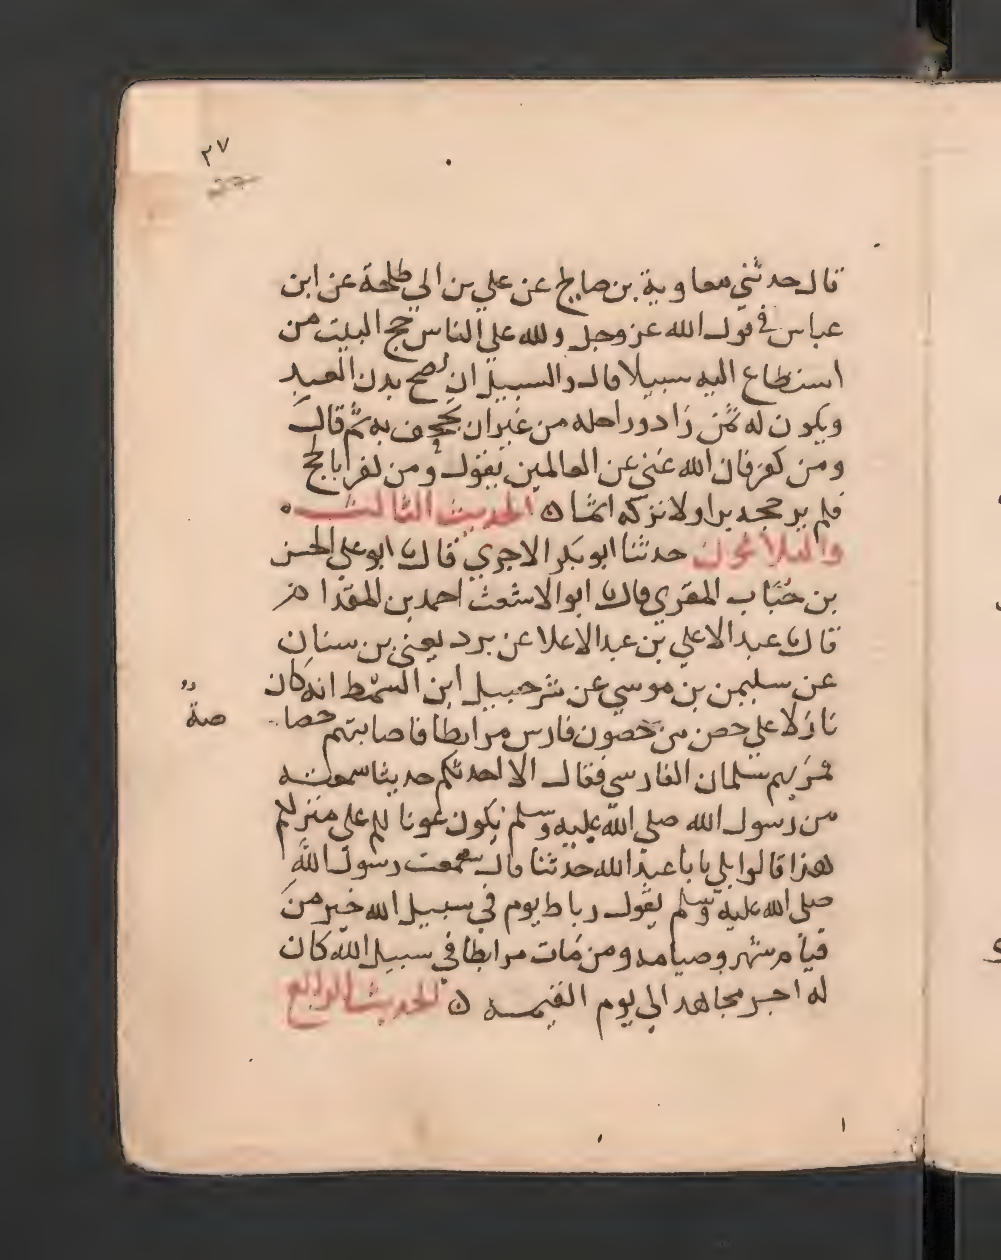 ٢٧
قال حدثني معاوية بن صالح عن علي بن ابي طلحة عن ابن
عباس في قول الله عز وجل ولله علي الناس حج البيت من
استطاع اليه سبيلا قال والسبيل ان يصح بدن العبد
ويكون له ثمن زاد وراحله من غير ان يجحف به ثم قال
ومن كفر فان الله غني عن العالمين يقول ومن كفر بالحج
فلم ير حجه برا ولا تركه اثما ۞ الحديث الثالث
والثلاثون حدثنا ابو بكر الاجري قال ثنا ابو علي الحسن
بن حباب المقري قال ثنا ابو الاشعث احمد بن المقدام
قال ثنا عبد الاعلي بن عبد الاعلا عن برد يعني بن سنان
عن سليمن بن موسي عن شرحبيل ابن السمط انه كان
نازلا علي حصن من حصون فارس مرابطا فاصابتهم خصا
صة
فمر بهم سلمان الفارسي فقال الا احدثكم حديثا سمعته
من رسول الله صلي الله عليه وسلم يكون عونا لكم علي منزلكم
هذا قالوا بلي يا با عبد الله حدثنا قال سمعت رسول الله
صلي الله عليه وسلم يقول رباط يوم في سبيل الله خير من
قيام شهر وصيامه ومن مات مرابطا في سبيل الله كان
له اجر مجاهد الي يوم القيمه ۞ الحديث الرابع